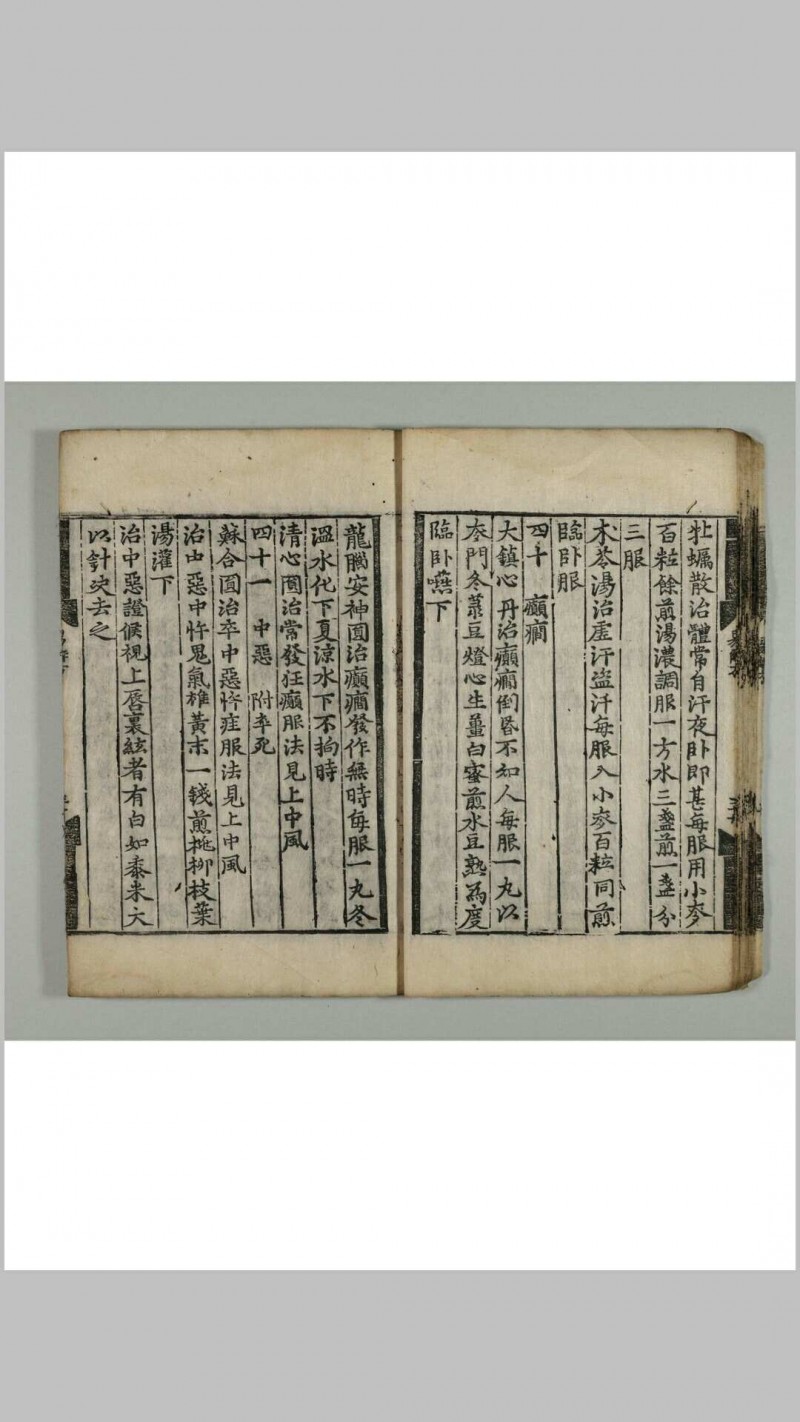 牡蠣散治體常自汗夜卧即甚每服用小麥
百粒餘煎湯濃調服一方水三盞煎一盞分
三服
木苓湯治虛汗盜汗每服入小麥百粒同煎
臨卧服
四十　癲癇
大鎮心丹治癲癇倒昏不知人每服一丸以
麥門冬菉豆燈心生薑白蜜煎水豆熟為度
臨卧嚥下
龍腦安神圎治癲癇發作無時每服一丸冬
溫水化下夏涼水下不拘時
清心圎治常發狂癲服法見上中風
四十一　中惡　附卒死
蘇合圎治卒中惡忤疰服法見上中風
治中惡中忤鬼氣雄黃末一錢煎桃柳枝葉
湯灌下
治中惡證候視上唇裏絃者有白如黍米大
以針决去之